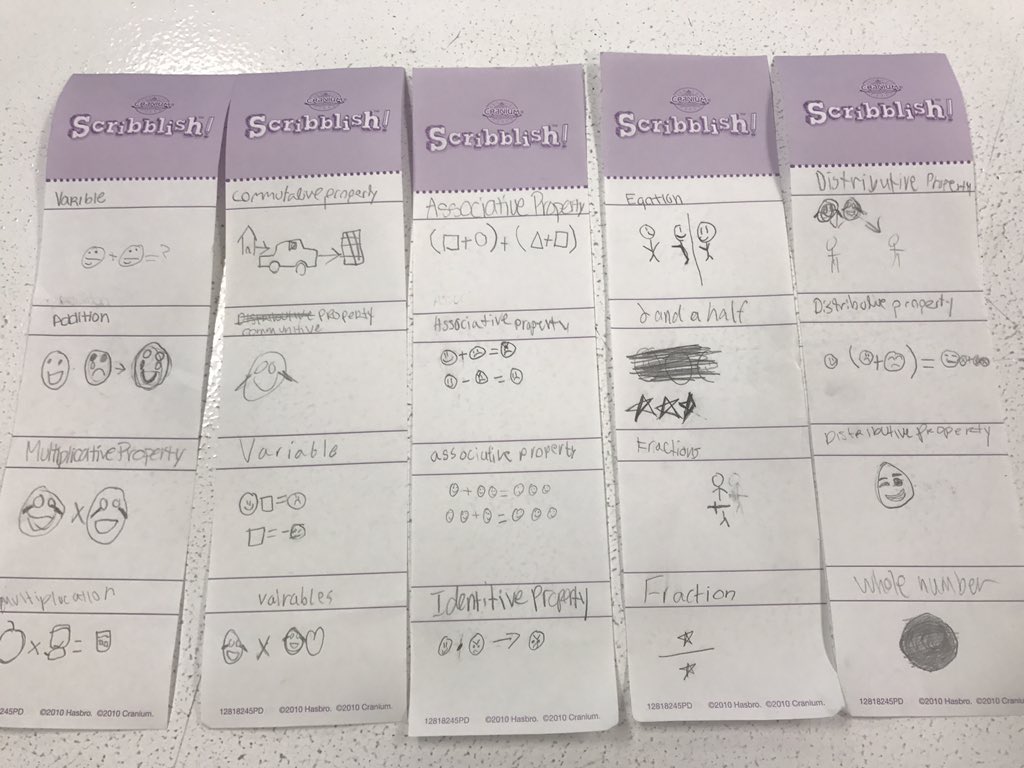 CRANIUM
Scribblish!
Varible
+ = ?
Addition
Multiplicative Property
x
multiplication
x =
245PD ©2010 Hasbro. ©2010 Cranium.
CRANIUM
Scribblish!
commutative property
Distributive Property
communitive
Variable
=
= -
vairables
x
12818245PD ©2010 Hasbro. ©2010 Cranium.
CRANIUM
Scribblish!
Associative Property
(□+○)+(△+□)
Associative property
+ =
- =
associative property
+ =
+ =
Identitive Property
12818245PD ©2010 Hasbro. ©2010 Cranium.
CRANIUM
Scribblish!
Eqation
2 and a half
Fractions
Fraction
12818245PD ©2010 Hasbro. ©2010 Cranium.
CRANIUM
Scribblish!
Distributive Property
Distributive property
( + ) = +
Distributive property
Whole number
12818245PD ©2010 Hasbro. ©2010 Cranium.